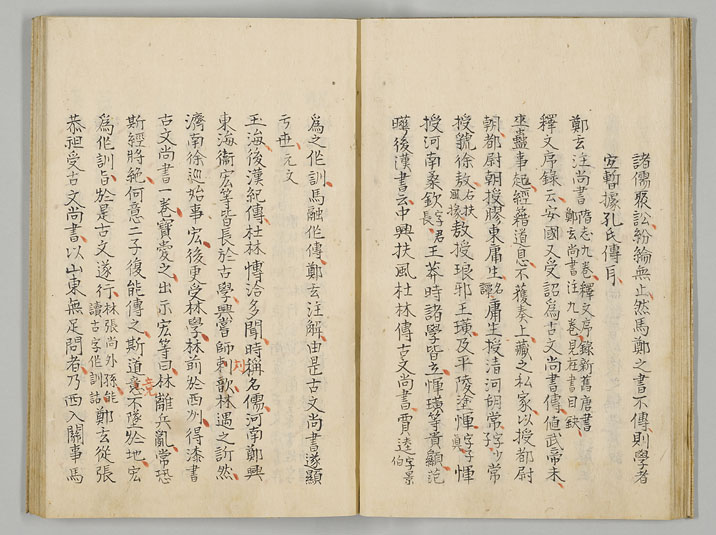 諸儒聚訟紛綸無止然馬鄭之書不傳則學者
宜暫據孔氏傳耳
鄭玄注尚書隋志九卷釋文序錄新舊唐書鄭玄尚書注九卷見在書目缺
釋文序錄云安國又受詔為古文尚書傳值武帝末
巫蠱事起經藉道息不獲奏上藏之私家以授都尉
朝都尉朝授膠東庸生名譚庸生授清河胡常字少子常
授虢徐敖右扶風掾敖授琅邪王璜及平陵塗惲字子真惲
授河南桑欽字君長王莽時諸學皆立惲璜等貴顯范
曄後漢書云中興扶風杜林傳古文尚書賈逵字景伯
為之作訓馬融作傳鄭玄注解由是古文尚書遂顯
于世元文
玉海後漢紀傳杜林博洽多聞時稱名儒河南鄭興
東海衞宏等皆長於古學興嘗師劉歆林遇之訢然
濟南徐巡始事宏後更受林學林前於西州得漆書
古文尚書一卷寶愛之出示宏等曰林離兵亂常恐
斯經將絕何意二子復能傳之斯道竟不墜於地宏
為作訓旨於是古文遂行林張尚外孫能讀古字作訓詁鄭玄從張
恭祖受古文尚書以山東無足問者乃西入關事馬